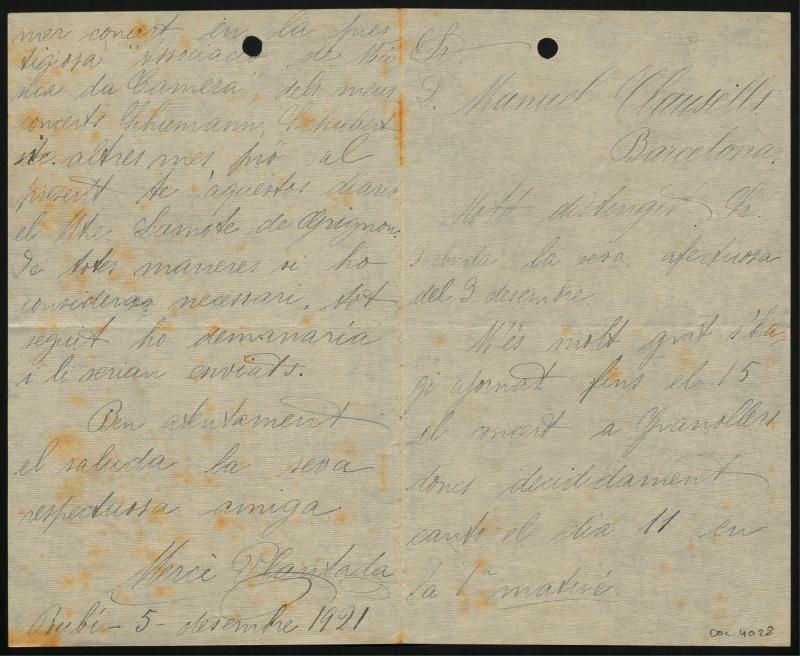 Sr.
D. Manuel Clausells.
Barcelona.
Molt distingit Sr.
Rebuda la seva afectuosa
del 3 desembre.
M'és molt grat s'ha-
gi ajornat fins el 15
el concert a Granollers
doncs decididament
canto el dia 11 en
la 1ª matiné.
mer concert en la pres
tigiosa "Associació de Mú
sica da Camera", dels meus
concerts Schumann, Schubert
etc. altres mes, pro al
present te aquestos diaris
el Mtre. Lamote de Grignon.
De totes maneres si ho
considera necessari, tot
seguit ho demanaria
i li serian enviats.
Ben atentament
el saluda la seva
respectuosa amiga
Mercè Plantada
Rubí - 5 - desembre 1921
DOC 4028